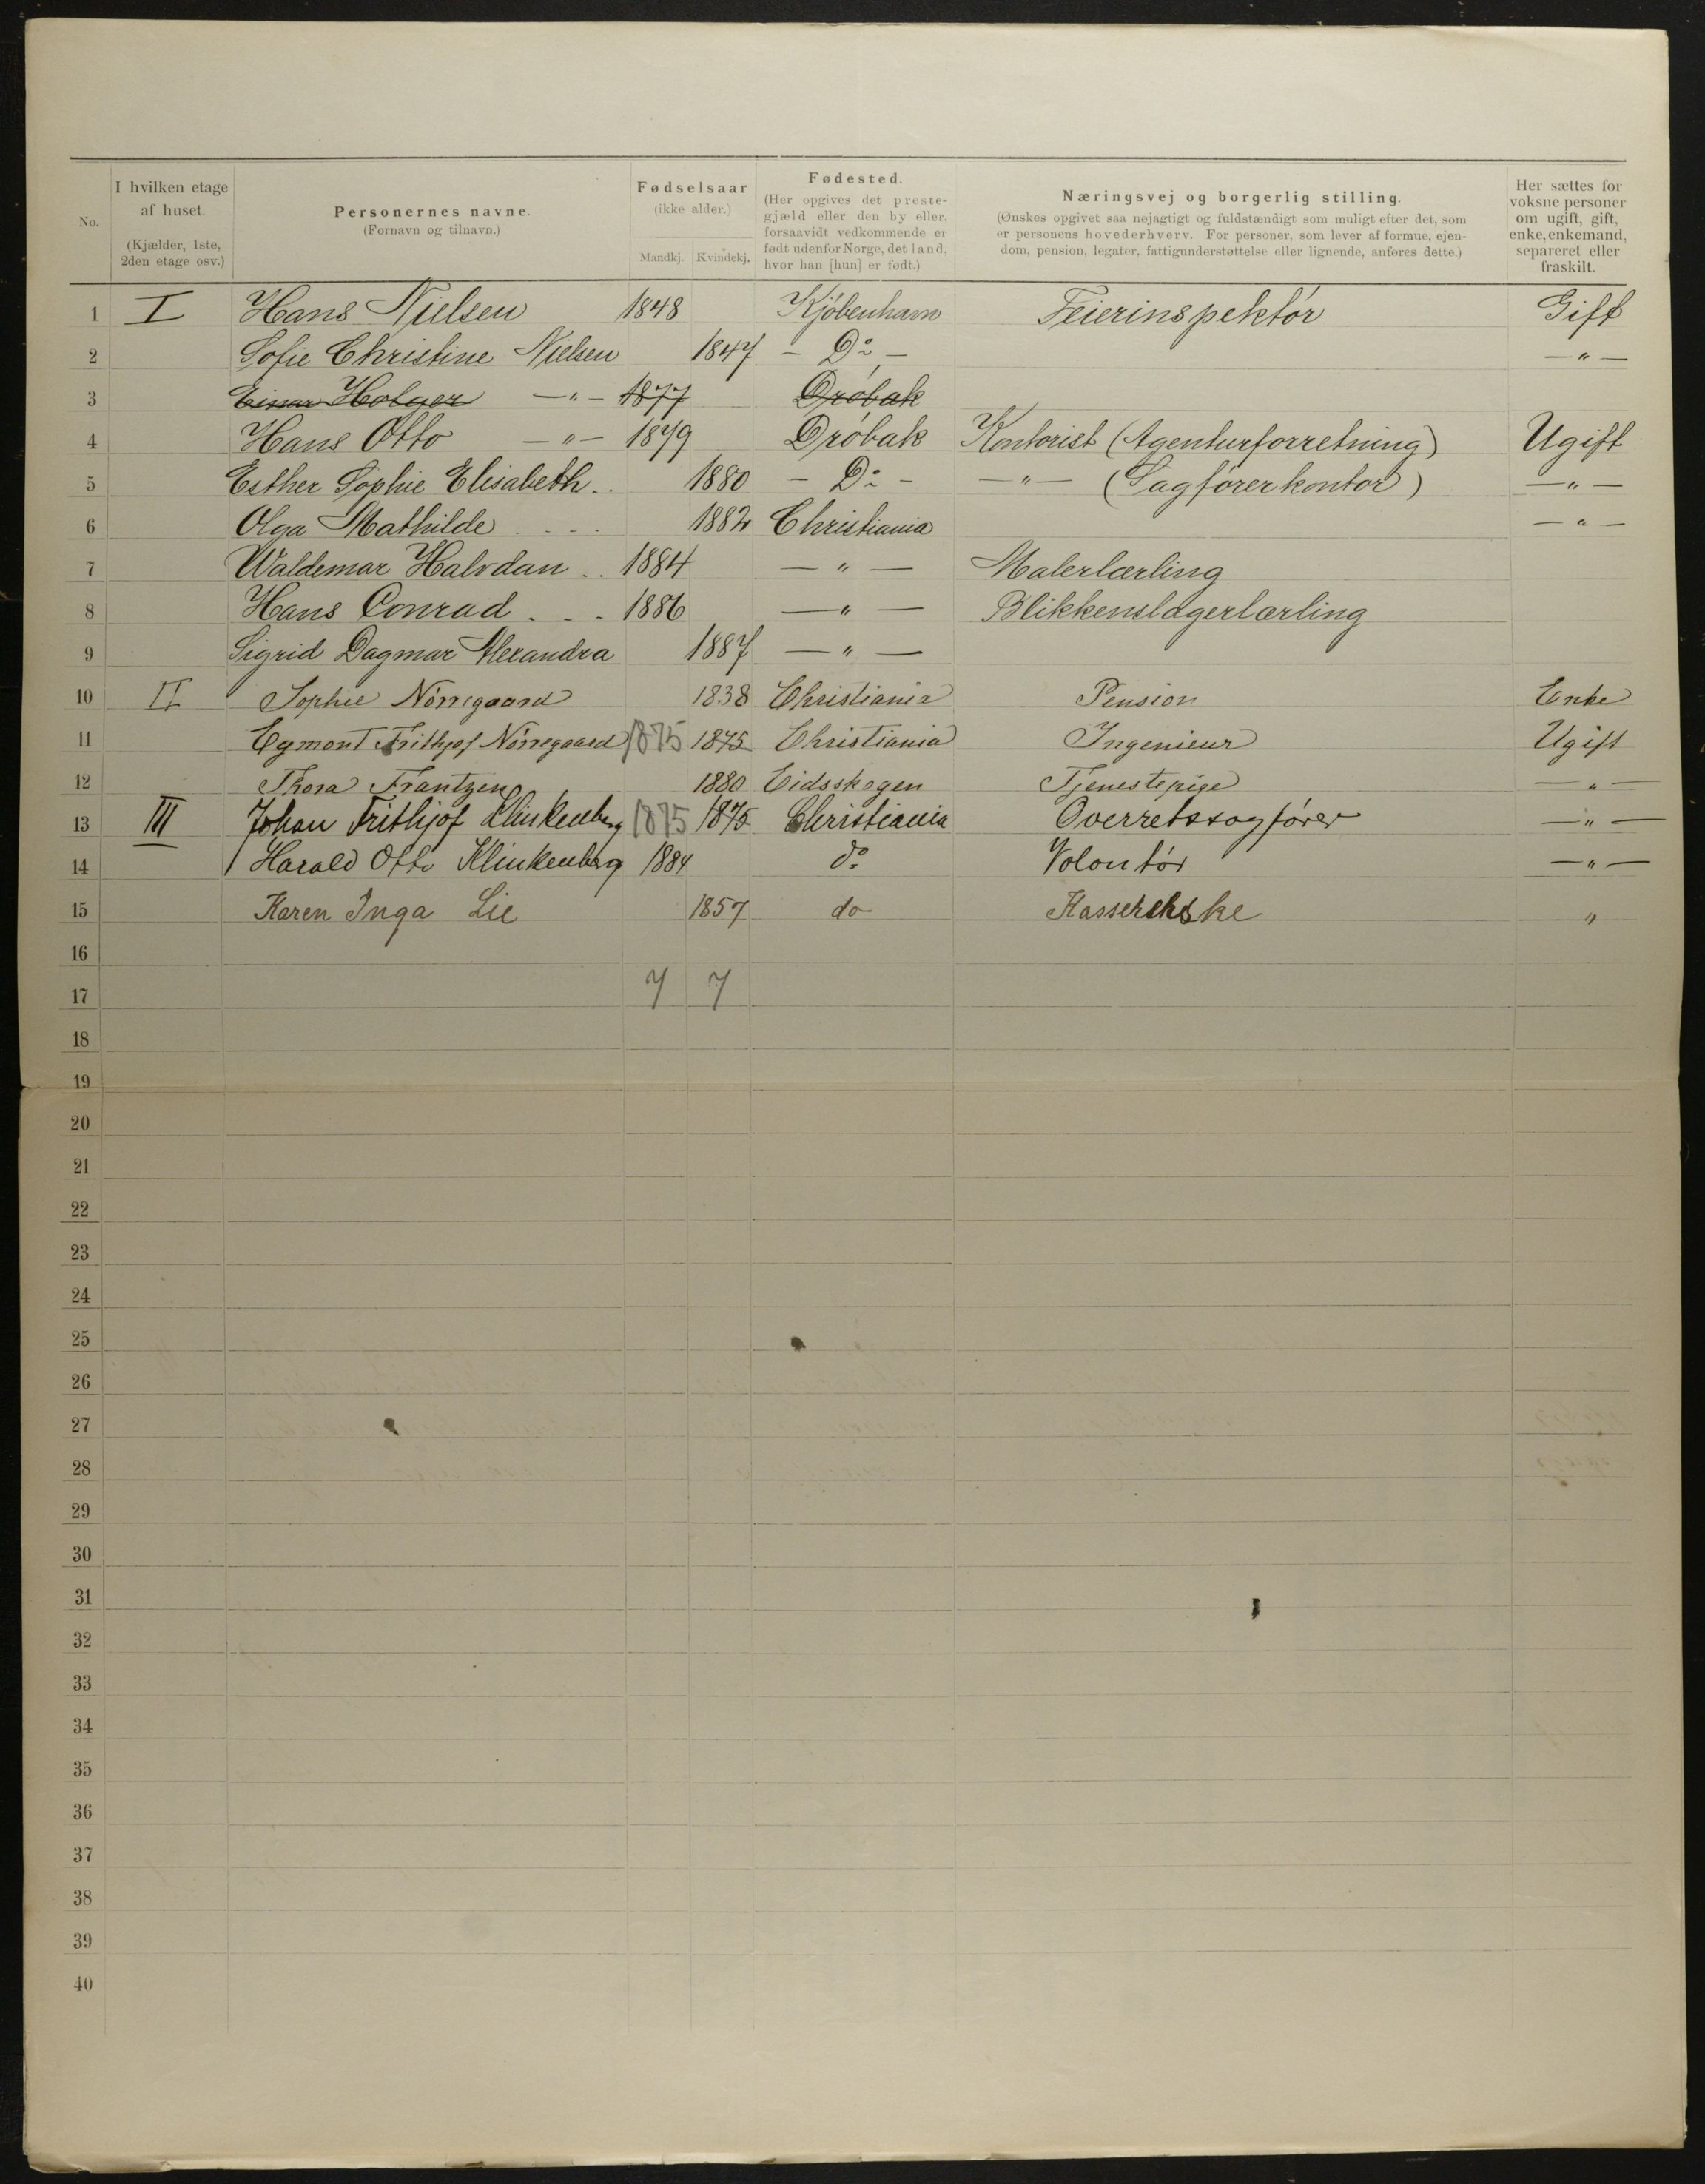 No.
I hvilken etage af huset. (Kjælder, 1ste, 2den etage osv.)
Personernes navne. (Fornavn og tilnavn.)
Fødselsaar (ikke alder.) Mandkj. Kvindekj.
Fødested. (Her opgives det præste-gjæld eller den by eller, forsaavidt vedkommende er født udenfor Norge, det land, hvor han [hun] er født.)
Næringsvej og borgerlig stilling. (Ønskes opgivet saa nøjagtigt og fuldstændigt som muligt efter det, som er personens hovederhverv. For personer, som lever af formue, ejen-dom, pension, legater, fattigunderstøttelse eller lignende, anføres dette.)
Her sættes for voksne personer om ugift, gift, enke, enkemand, separeret eller fraskilt.
1 I Hans Nielsen 1848 Kjøbenhavn Feierinspektør Gift
2 Sofie Christine Nielsen 1847 - Do - - " -
3 Einar Holger - " - 1877 Drøbak
4 Hans Otto - " - 1879 Drøbak Kontorist (Agenturforretning) Ugift
5 Esther Sophie Elisabeth . . 1880 - Do - - " - (Sagførerkontor) - " -
6 Olga Mathilde . . . 1882 Christiania - " -
7 Waldemar Halvdan . . 1884 - " - Malerlærling
8 Hans Conrad . . . 1886 - " - Blikkenslagerlærling
9 Sigrid Dagmar Alexandra 1887 - " -
10 II Sophie Nørregaard 1838 Christiania Pension Enke
11 Egmont Frithjof Nørregaard 1875 1875 Christiania Ingenieur Ugift
12 Thora Frantzen 1880 Eidsskogen Tjenestepige - " -
13 III Johan Frithjof Klinkenberg 1875 1875 Christiania Overretssagfører - " -
14 Harald Otto Klinkenberg 1884 do Volontør - " -
15 Karen Inga Lie 1857 do Kassererske "
16
17 7 7
18
19
20
21
22
23
24
25
26
27
28
29
30
31
32
33
34
35
36
37
38
39
40